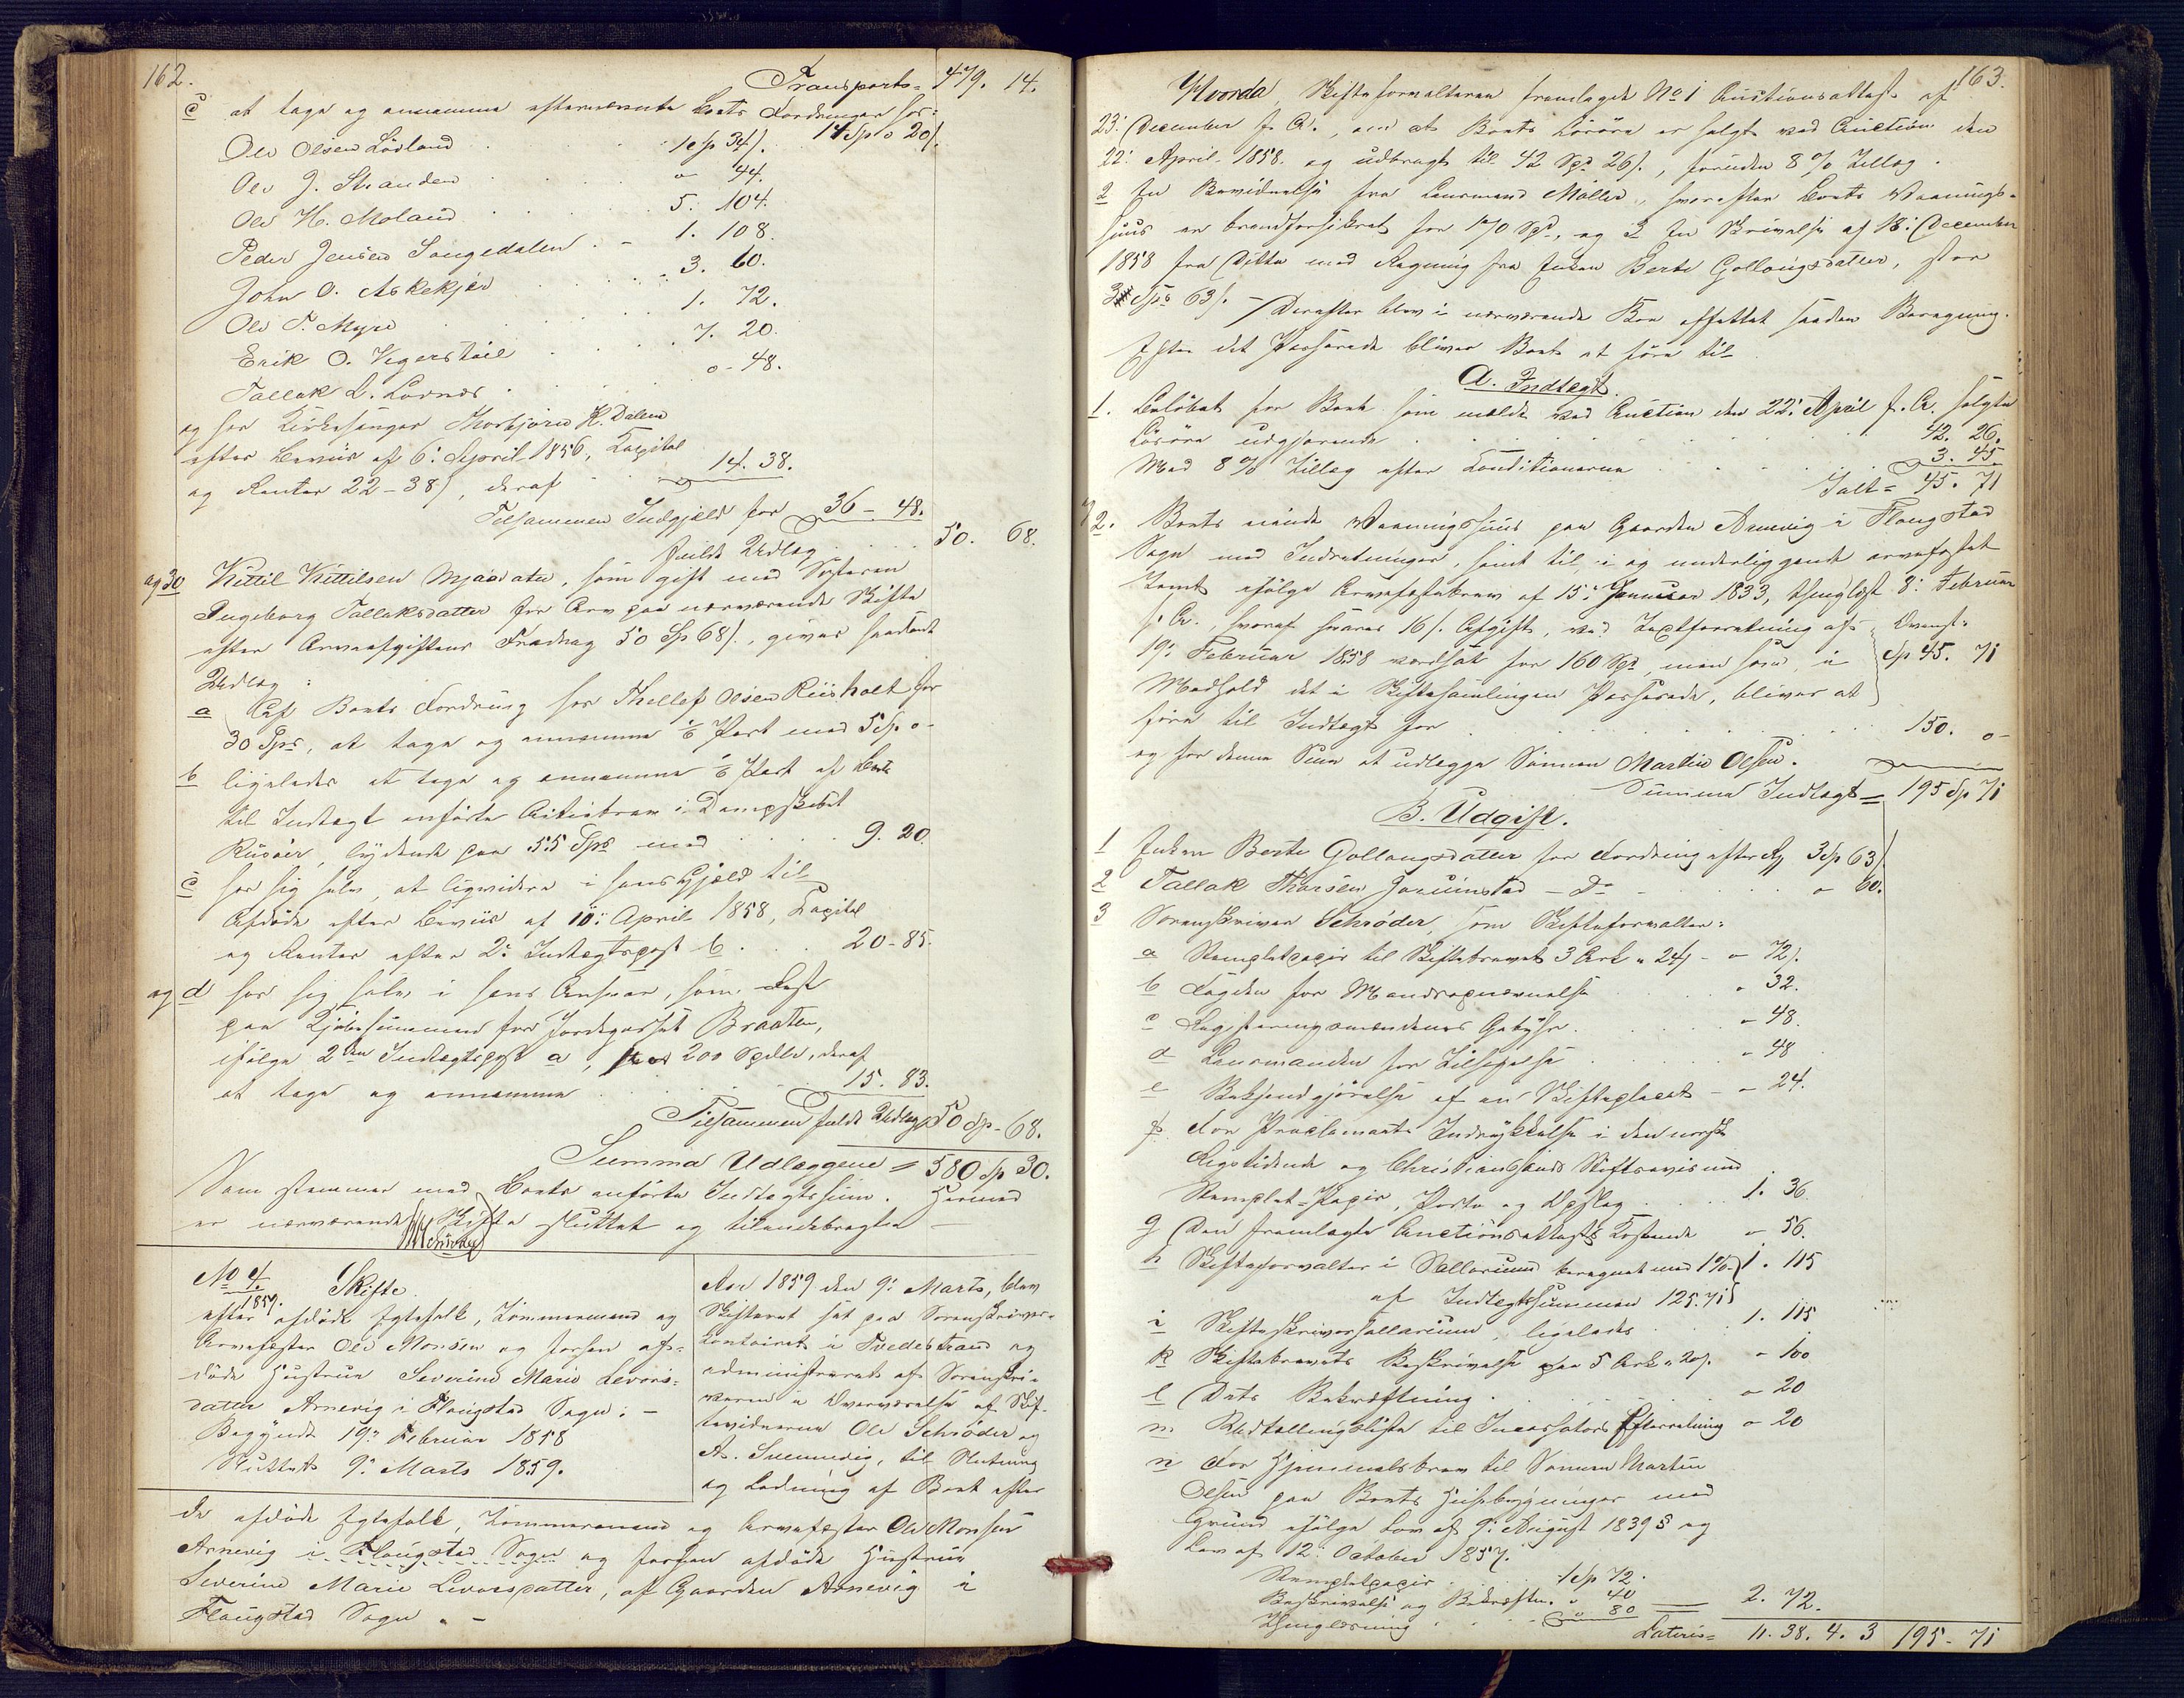 162.
Transport = 479. 14.
c at tage og annamme efternævnte Boets Fordringer hos:
Ole Olsen Lövland . . 1 Sp 34 s. 14 Sp o 20 s.
Ole J. Stranden . . o 44.
Ole H. Moland . . 5. 104.
Peder Jensen Songedalen . - 1. 108.
John O. Askekjær . . 3. 60.
Ole T. Myre . . 1. 72.
Erik O. Vegerstöl . . 7. 20.
Tallak L. Lövnæs . . o - 48.
og hos Kirkesanger Thorbjørn H. Dalen
efter Beviis af 6: April 1856, Kapital
og Renter 22 - 38 s, deraf . . 14. 38.
Tilsammen Indgjæld for 36 - 48.
fuldt Udlæg . . 50. 68.
og 30 Kittil Kittilsen Mjaavatn, som gift med Søsteren
Ingeborg Tallaksdatter for Arv paa nærværende Skifte
efter Arveafgiftens Fradrag 50 Sp 68 s., gives saadant
Udlæg:
a Af Boets Fordring hos Thellef Olsen Riisholt for
30 Spd, at tage og annamme 1/6 Part med 5 Sp o -
b ligeledes at tage og annamme 1/6 Part af Boets
til Indtægt anførte Actiebrev i Dampskibet
Risöer, lydende paa 55 Spd med . . 9. 20.
c hos sig selv, at liqvidere i hans Gjæld til
Afdøde efter Beviis af 10: April 1858, Kapital
og Renter efter 2: Indtægtspost b . . 20 - 85.
og d hos sig selv i hans Ansvar, som Rest
paa Kjøbesummen for Jordegodset Braaten,
ifølge 2den Indtægtspost a, 200 Spdlr, deraf
at tage og annamme . . 15. 83.
Tilsammen fuldt Udlæg 50 Sp - 68.
Summa Udlæggene = 580 Sp 30.
Som stemmer med Boets anførte Indtægtssum. Hermed
er nærværende Skifte sluttet og tilendebragt. -
No 4.
1859. Skifte
efter afdøde Egtefolk, Tømmermand og
Arvefæster Ole Monsen og forhen af-
døde Hustrue Severine Marie Levors-
datter Arnevig i Flaugstad Sogn: -
Begyndt 19: Februar 1858
Sluttet 9: Marts 1859.
Aar 1859 den 9: Marts, blev
Skifteret sat paa Sorenskriver-
contoiret i Tvedestrand og
administreret af Sorenskri-
veren i Overværelse af Skif-
tevidnerne Ole Schröder og
A. Svennevig, til Slutning
og Lodning af Boet efter
de afdøde Egtefolk, Tømmermand og Arvefæster Ole Monsen
Arnevig i Flaugstad Sogn og forhen afdøde Hustrue
Severine Marie Levorsdatter, af Gaarden Arnevig i
Flaugstad Sogn. -
163.
Hvorda Skifteforvalteren fremlagde No 1 Auctionsattest af
23: December f. A., om at Boets Løsøre er solgt ved Auction den
22: April 1858 og udbragt til 42 Spd 26 s., foruden 8 % Tillæg.
2 En Bevidnelse fra Lensmand Möller, hvorefter Boets Vaanings-
huus er brandforsikret for 170 Spd, og 3 En Skrivelse af 18: December
1858 fra Ditto med Regning fra Enken Berte Gollaugsdatter, stor
3 Spd 63 s. - Derefter blev i nærværende Boe affattet saadan Beregning.
Efter det Passerede bliver Boet at føre til
A. Indtægt.
1. Beløbet for Boets som meldt ved Auction den 22: April f. A. solgte
Løsøre udgjørende . . 42. 26.
Med 8 % Tillæg efter Conditionerne . . 3. 45
Ialt = 45. 71
2. Boets eiende Vaaningshuus paa Gaarden Arnevig i Flaugstad
Sogn med Indretninger, samt til, i og underliggende arvefæstet
Tomt ifølge Arvefæstebrev af 15: Januar 1833, thinglæst 8: Februar
s. A. hvoraf svares 16 s. Afgift, ved Taxtforretning af
19: Februar 1858 værdsat for 160 Spd, men som, i
Medhold det i Skiftesamlingen Passerede, bliver at
føre til Indtægt for . . 150. o -
Sp 45. 71
og for denne Sum at udlægge Sønnen Martin Olsen.
Summa Indtægt = 195 Sp 71
B. Udgift.
1 Enken Berte Gollaugsdatter for Fordring efter Rg 3 Sp 63 s
2 Tallak Thorsen Goderstad - Do - . . o 60.
3 Sorenskriver Schröder, som Skifteforvalter:
a Stemplet papir til Skiftebrevet 3 Ark a 24 s - o 72 s.
b Fogden for Mændsopnævnelse . . o 32.
c Registreringsmændenes Gebyhr . . - 48.
d Lensmanden for Tilsigelse . . - 48
e Bekjendgjørelse af en Skifteplacat - - 24.
f. For Proclamaets Indrykkelse i den norske
Rigstidende og Christiansands Stiftsavis med
Stemplet-Papir, Porto og Opslag . . 1. 36.
g Den fremlagte Auctionsattests Kostende - 56.
h Skifteforvalter i Sallarium beregnet med 1 % 1. 115
af Indtægtssummen 195. 71 s
i Skifteskriversallarium, ligeledes . . 1. 115
k Skiftebrevets Beskrivelse paa 5 Ark a 20 s. - 100
l Dets Bekræftning . . o 20
m Udtællingsliste til Incassators Efterretning o 20
n For Hjemmelsbrev til Sønnen Martin
Olsen paa Boets Huusebygninger med
Grund ifølge Lov af 9: August 1839 § og
Lov af 12: October 1857.
Stempletpapir . . 1 Sp 72.
Beskrivelse og Bekræftn. o 40
Thinglæsning . . o 80 = 2. 72.
Lateris = 11. 38. 4. 3 195 - 71